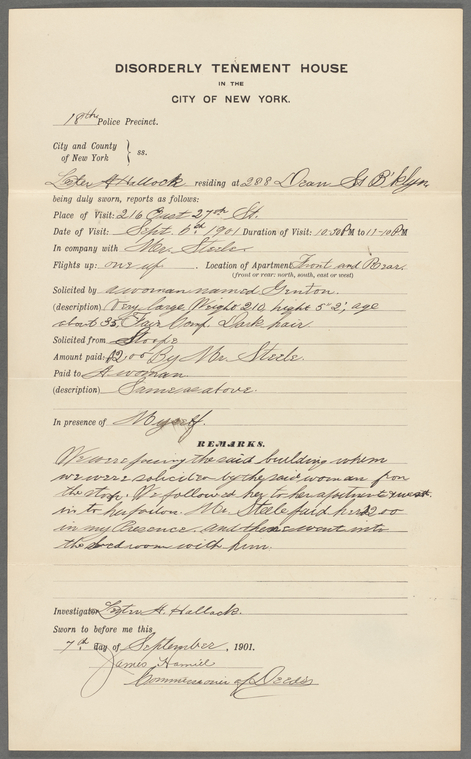 DISORDERLY TENEMENT HOUSE
IN THE
CITY OF NEW YORK.
18th Police Precinct.
City and County
of New York } ss.
Lester A Hallock residing at 288 Dean St B'klyn
being duly sworn, reports as follows:
Place of Visit: 216 East 27th St.
Date of Visit: Sept. 6th 1901 Duration of Visit: 10:50 PM to 11-10 PM
In company with Mr. Steele
Flights up: one up. Location of Apartment Front and Rear.
(front or rear: north, south, east or west)
Solicited by a woman named Genton.
(description) Very large, Weight 210, hight 5" 2', age
about 35, Fair Comp. Dark hair.
Solicited from Stoope
Amount paid: $2 00 By Mr. Steele.
Paid to A woman
(description) Same as above.
In presence of Myself.
REMARKS.
We were passing the said building when
we were solicited by the said woman from
the stoop. We followed her to her apartment & went
in to her parlor. Mr. Steele paid her $2 00
in my Presence. and then went into
the bed room with him.
Investigator Lester A. Hallock.
Sworn to before me this
7th day of September, 1901.
James Hamill
Commissioner of Deeds